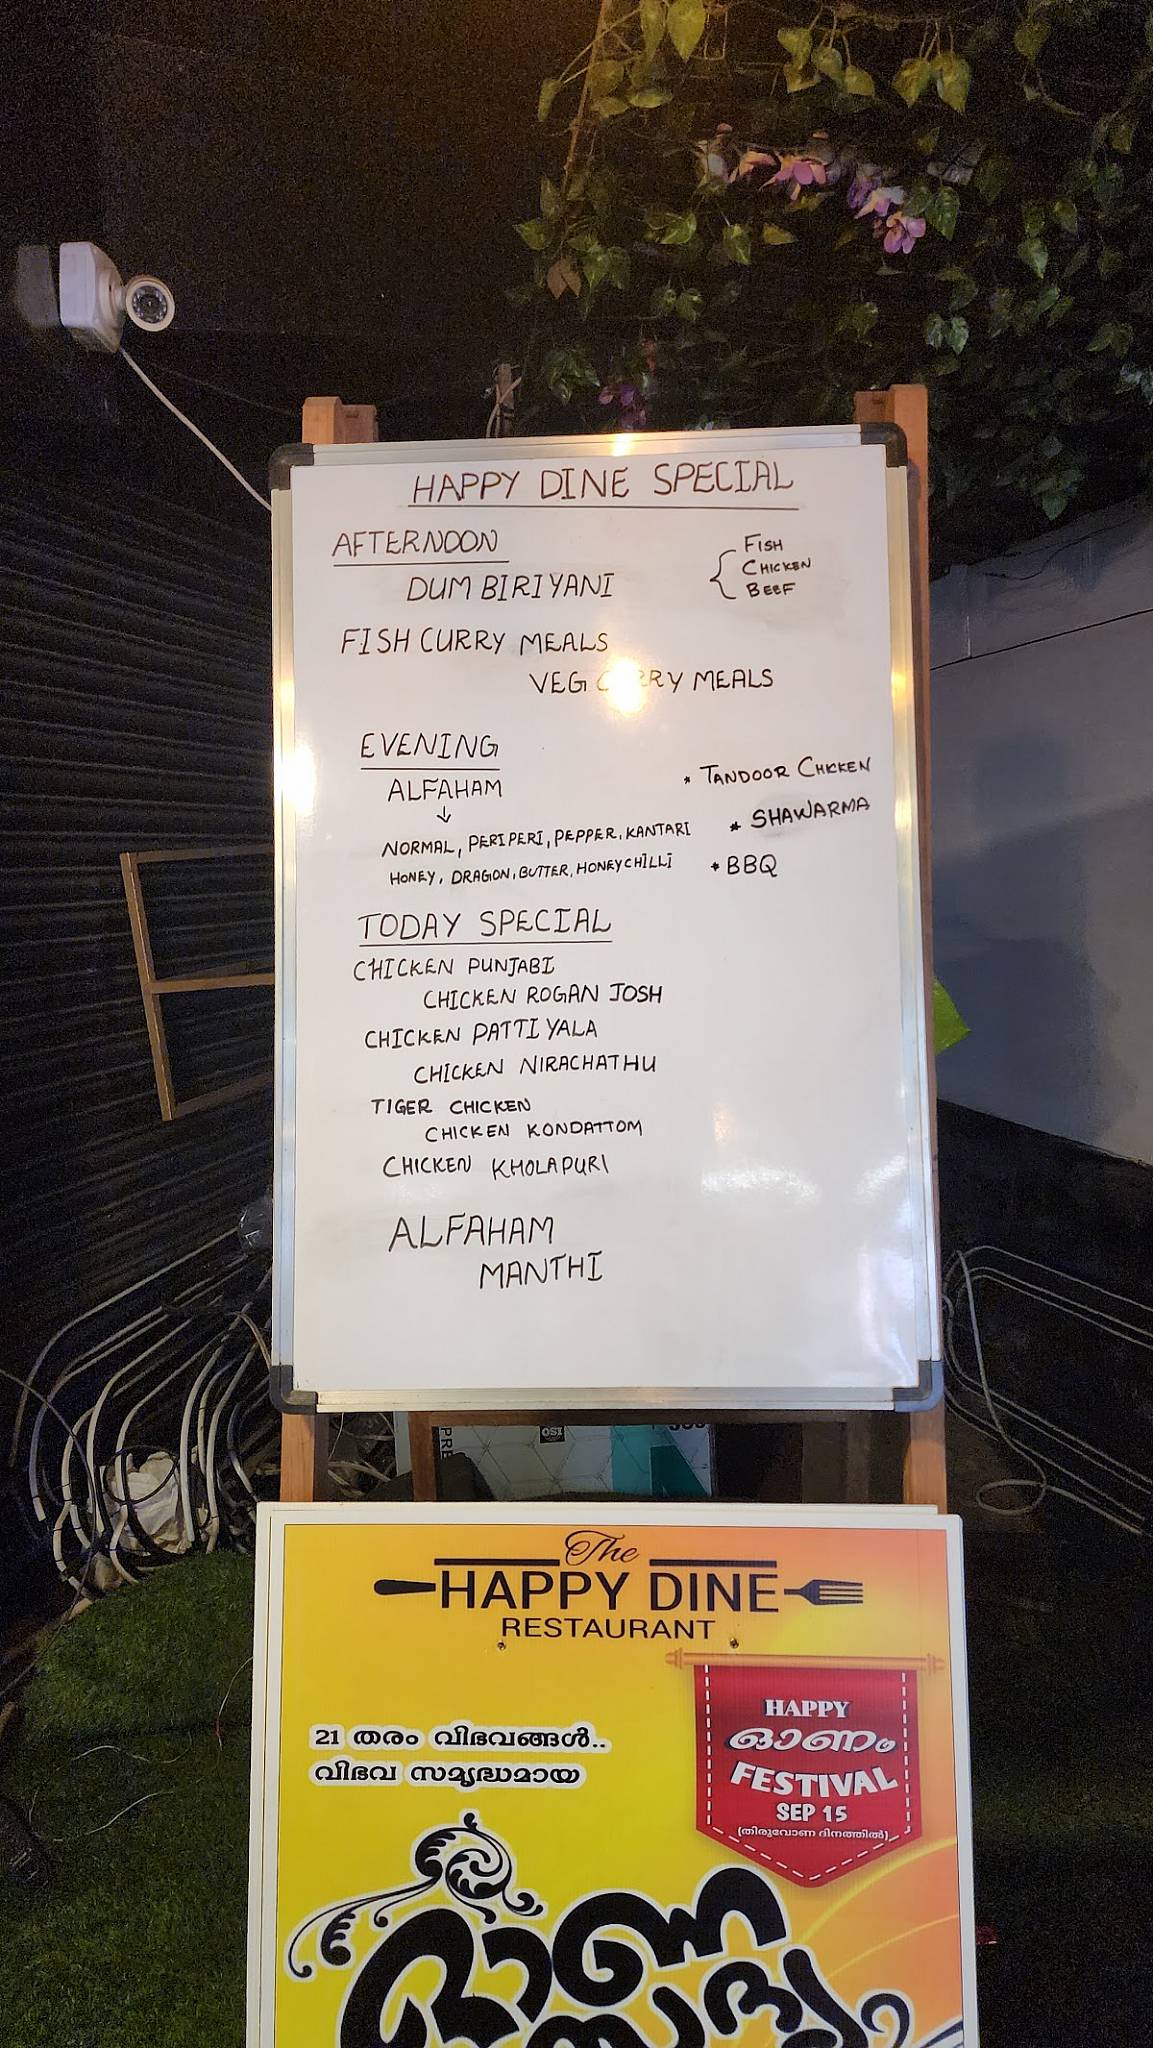 HAPPY DINE SPECIAL
AFTERNOON
DUM BIRIYANI
FISH
CHICKEN
BEEF
FISH CURRY MEALS
VEG CURRY MEALS
EVENING
ALFAHAM
NORMAL, PERIPERI, PEPPER, KANTARI
HONEY, DRAGON, BUTTER, HONEYCHILLI
* TANDOOR CHICKEN
* SHAWARMA
* BBQ
TODAY SPECIAL
CHICKEN PUNJABI
CHICKEN ROGAN JOSH
CHICKEN PATTIYALA
CHICKEN NIRACHATHU
TIGER CHICKEN
CHICKEN KONDATTOM
CHICKEN KHOLAPURI
ALFAHAM
MANTHI
OSI
The
HAPPY DINE
RESTAURANT
21 തരം വിഭവങ്ങൾ..
വിഭവ സമൃദ്ധമായ
HAPPY
ഓണം
FESTIVAL
SEP 15
(തിരുവോണ ദിനത്തിൽ)
ഓണ